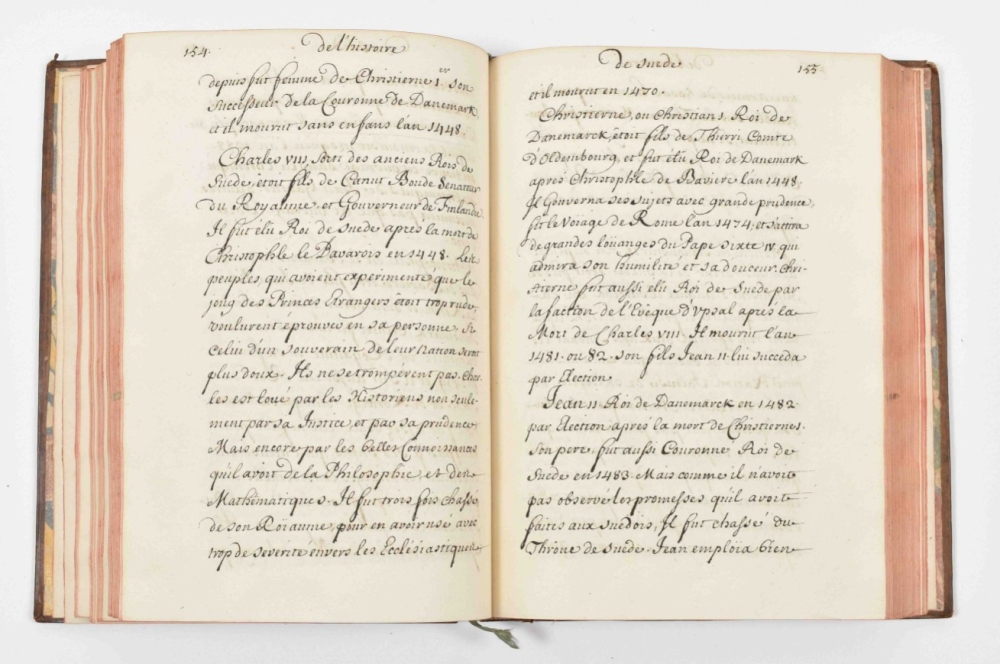 154.
de l'histoire
depuis fut femme de Christierne 1er son
successeur de la Couronne de Danemark,
et il mourut sans enfans l'an 1448.
Charles VIII, sorti des anciens Rois de
Suede, étoit fils de Canut Bonde Senateur
du Royaume, et Gouverneur de Finlande
Il fut elû Roi de suede après la mort de
Christophle le Bavarois en 1448. Les
peuples, qui avoient experimenté que le
joug des Princes Etrangers étoit trop rude,
voulurent éprouver en sa personne si
celui d'un souverain de leur Nation seroit
plus doux. Ils ne se trompèrent pas. Char-
les est loué par les Historiens non seule-
ment par sa Justice, et pas sa prudence
Mais encore par les belles Connoissances
qu'il avoit de la Philosophie, et des
Mathématiques. Il fut trois fois chassé
de son Roiaume, pour en avoir usé avec
trop de severité envers les Ecclésiastiques
de suede
155
et il mourut en 1470.
Christierne, ou Christian 1. Roi de
Danemarck, étoit fils de Thierri, Comte
d'Oldembourg, et fut élu Roi de Danemark
après Christophle de Baviere l'an 1448,
Il Gouverna ses sujets avec grande prudence,
fit le voiage de Rome l'an 1474, et s'attira
de grandes loüanges du Pape sixte IV qui
admira son humilité et sa douceur. Chri-
stierne fut aussi elû Roi de Suède par
la faction de l'Evêque d'Upsal après la
Mort de Charles VIII. Il mourut l'an
1481. ou 82. son fils Jean 11. lui succeda
par Election
Jean 11. Roi de Danemarck en 1482.
par Election après la mort de Christierne 1.
son pere, fut aussi Couronné Roi de
Suède en 1483. Mais comme il n'avoit
pas observé les promesses qu'il avoit
faites aux suedois, Il fut chassé du
Thrône de suède. Jean emploïa bien